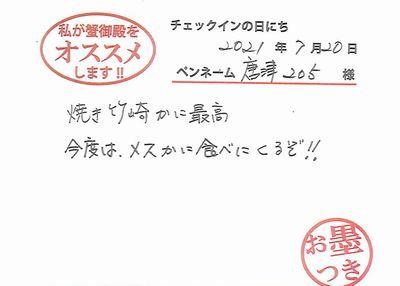 私が蟹御殿を
オススメ
します!!
チェックインの日にち
2021 年 7月 20日
ペンネーム 唐津205 様
焼き竹崎かに最高
今度は、メスかに食べにくるぞ!!
お墨
つき